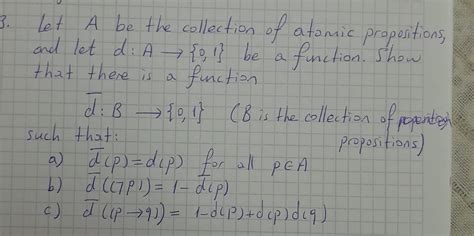 3. Let A be the collection of atomic propositions,
and let d: A → {0,1} be a function. Show
that there is a function
d̅ : B → {0,1} (B is the collection of
propositions)
such that:
a) d̅(p) = d(p) for all p∈A
b) d̅((¬P)) = 1 - d̅(p)
c) d̅((p → q)) = 1-d̅(p)+d̅(p)d̅(q)